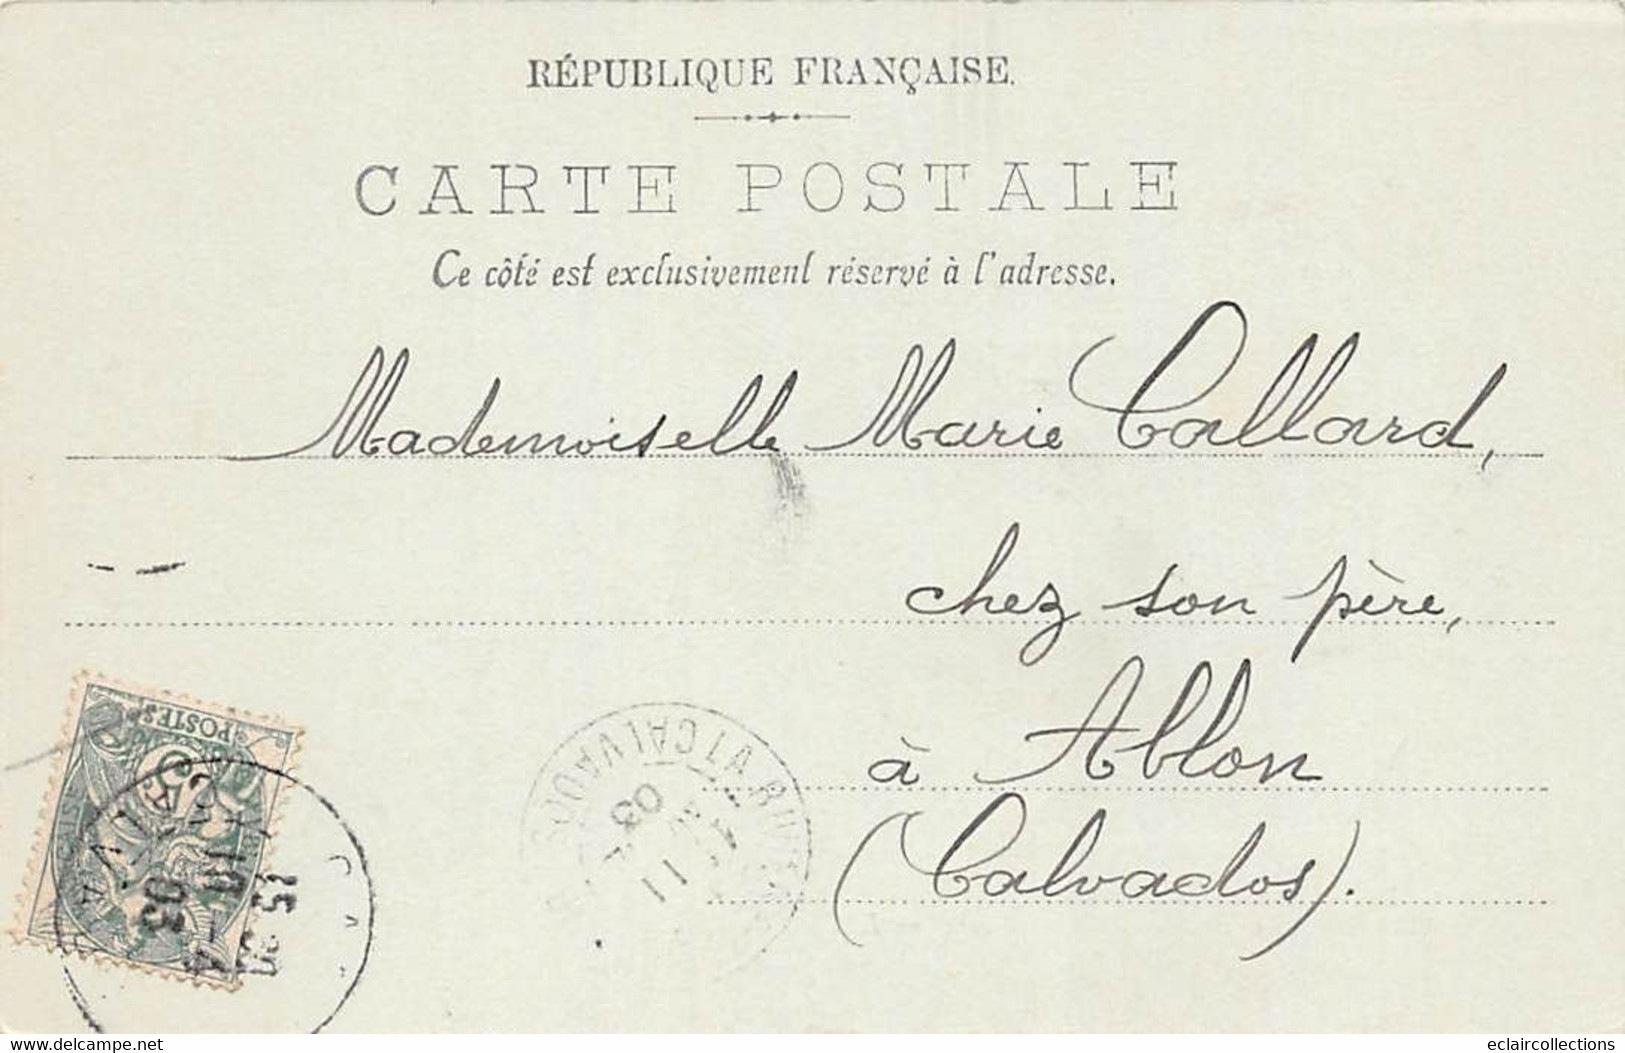 RÉPUBLIQUE FRANÇAISE.
CARTE POSTALE
Ce côté est exclusivement réservé à l'adresse.
Mademoiselle Marie Callard,
chez son père,
à Ablon
(Calvados).
POSTES
5
CALV
03
LA RIV
CALVADOS
11
03
www.delcampe.net
eclaircollections